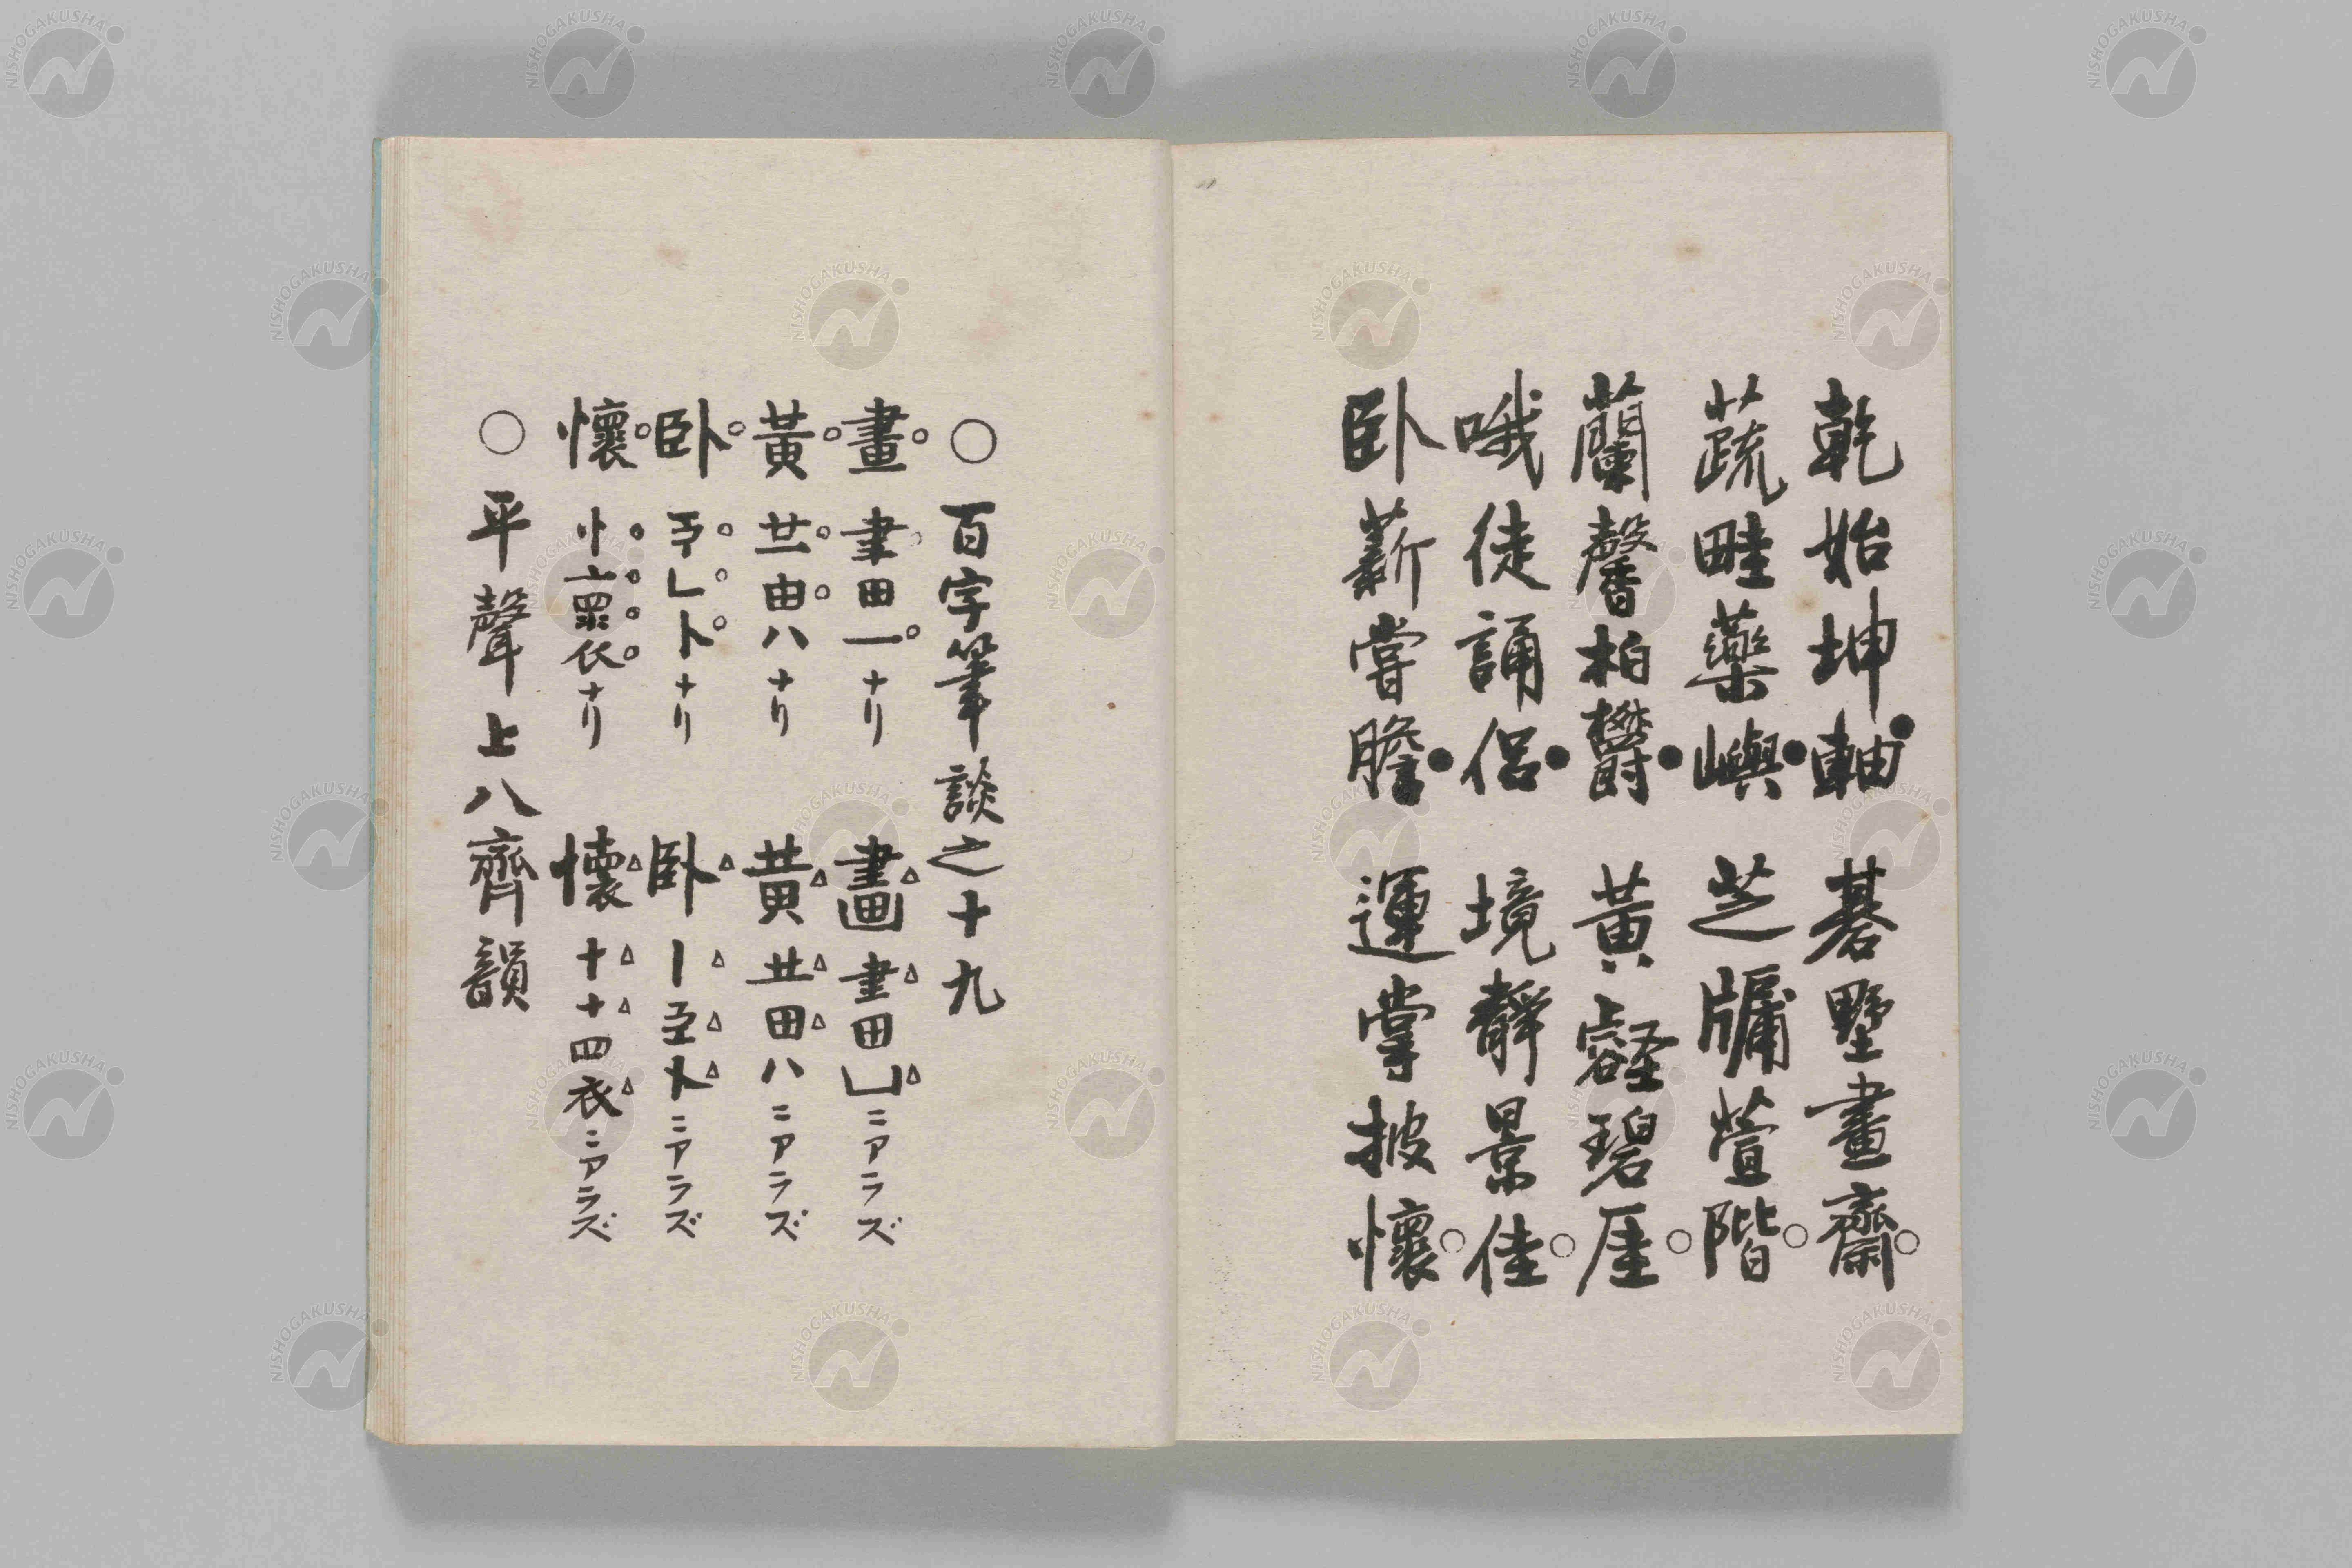 乾始坤軸●碁墅畫齋○
蔬畦藥嶼●芝牖萱階○
蘭馨柏欝●黃壑碧厓○
哦徒誦侶●境靜景佳○
臥薪嘗膽●運掌披懷○
○百字筆談之十九
畫 田一ナリ 畫 田凵ニアラズ
黃 由八ナリ 黄 田八ニアラズ
臥 ナリ 臥 ニアラズ
懷 ナリ 懐 十十四衣ニアラズ
○平聲上八齊韻
NISHOGAKUSHA